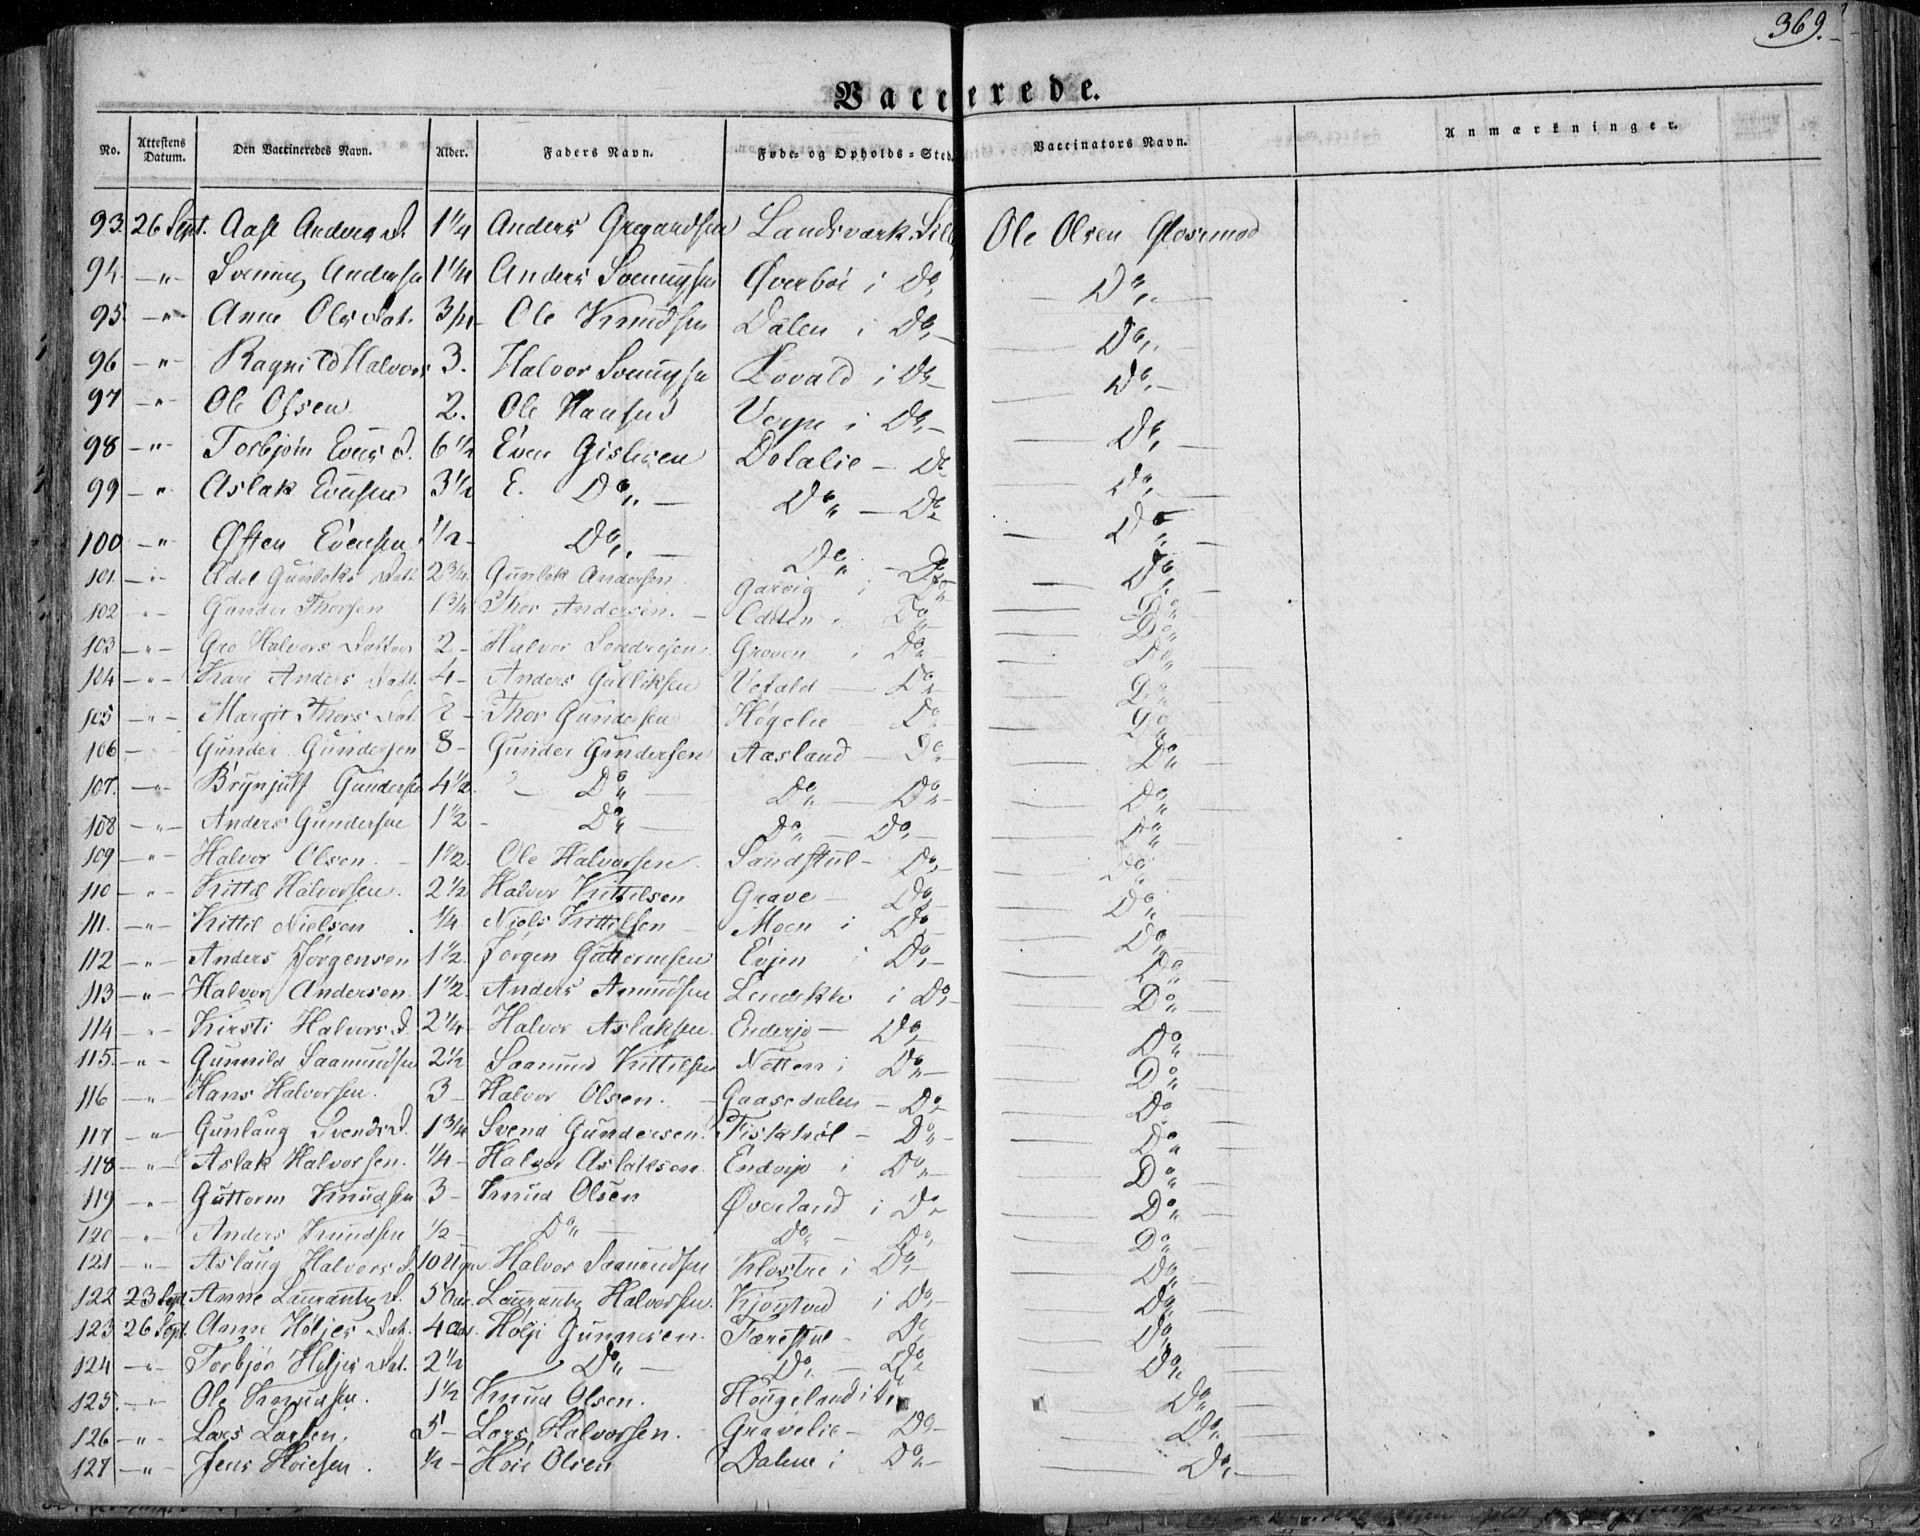 369.
Vaccinerede.
No. Attestens Datum. Den Vaccineredes Navn. Alder. Faders Navn. Føde- og Opholds-Sted. Vaccinators Navn. Anmærkninger.
93. 26 Sept. Aase Anders D. 1 1/4 Anders Landsværk i Ole Olsen
94 -"- Svenung Andersen 1 1/4 Anders Svenungsen Øverbøi i Do, Do,
95 -"- Anne Ols Dat. 3/4 Ole Knudsen Dalen i Do, Do,
96 -"- Ragnild Halvors 3. Halvor Svenungsen i Do Do,
97 -"- Ole Olsen 2. Ole Hansen i Do, Do,
98 -"- Torbjørn Evens D. 6 1/2 Even Gislesen Dolalie - Do Do,
99 -"- Aslak Evensen 3 1/2 E. Do,, Do,, - Do Do,
100 -"- Østen Evensen 1/2 Do,, Do,, - Do Do,,
101 -"- Adel Gunleks Dat. 2 3/4 Gunlek Andersen Garvig i Do Do,,
102 -"- Gunder Thorsen 1 3/4 Thor Andersen. Do,, Do,,
103 -"- Gro Halvors Datter 2 - Halvor Sondresen Groven i Do,, Do,,
104 -"- Kari Anders Datt. 4 - Anders Gulliksen Vefald - Do,, Do,,
105 -"- Margit Thors Dat. Thor Gundersen Høgelie Do, Do,,
106 -"- Gunder Gundersen 8 - Gunder Gundersen Aasland - Do, Do,,
107. -"- Brynjulf Gundersen 4 1/2 Do,, Do,, - Do,, Do,,
108 -"- Anders Gundersen 1 1/2 - Do,, Do,, - Do, Do,,
109 -"- Halvor Olsen. 1 1/2. Ole Halvorsen Sandstul - Do, Do,,
110 -"- Kittil Halvorsen. 2 1/2 Halvor Kittilsen Grave - Do, Do,,
111. -"- Kittil Nielsen 1/4 Niels Kittilsen Moen i Do, Do,,
112 -"- Anders Jørgensen 1 1/2. Jørgen Guttormsen Evjen i Do, Do,,
113 -"- Halvor Andersen. 1 1/2. Anders Amundsen i Do, Do,,
114 -"- Kirsti Halvors D. 2 1/4 Halvor Aslaksen. Enderjo - Do, Do,,
115. -"- Gunnild Saamundsen 2 1/2 Saamund Kittilsen Netten i Do,, Do,,
116 -"- Hans Halvorsen. 3 - Halvor Olsen. Gaasedalen - Do, Do,,
117 -"- Gunlaug Svends D. 1 3/4 Svend Gundersen. Do,, Do,,
118 -"- Aslak Halvorsen. 1/4 - Halvor Aslaksen. Enderjo i Do,, Do,,
119 -"- Guttorm Knudsen 3 - Knud Olsen Øverland i Do Do,,
120 -"- Anders Knudsen 1/2 - Do,, Do,, - Do,, Do,,
121 -"- Aslaug Halvors D. 10 Uger Halvor Saamundsen Klostre i Do, Do,,
122 23 Sept. Anne Laurantz D. 5 Aar. Laurantz Halvorsen. i Do, Do,,
123 26 Sept. Anne Høljes Dat. 4 Aar. Hølje Gunnersen. Færestul - Do Do,,
124 -"- Torbjør Høljes Dat. 2 1/2 Do,, Do, - Do,, Do,,
125. -"- Ole Knudsen. 1 1/2 Knud Olsen. Hougeland i Do Do,,
126 -"- Lars Larsen. 5 - Lars Halvorsen. Gravelie - Do Do,,
127 -"- Jens Høiesen. 1/2 - Høie Olsen Dalene i Do,, Do,